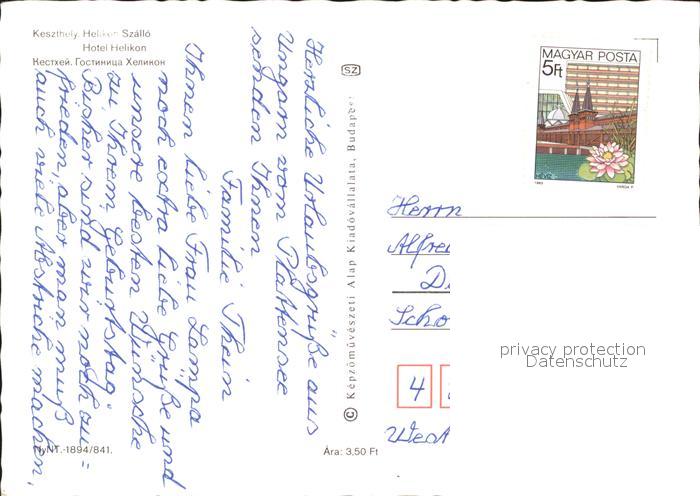 Keszthely. Helikon Szálló
Hotel Helikon
Кестхей. Гостиница Хеликон
Herzliche Urlaubsgrüße aus
Ungarn vom Plattensee
senden Ihnen
Familie Thein
Ihnen liebe Frau Lampa
noch extra liebe Grüße und
unsere besten Wünsche
zu Ihrem Geburtstag.
Bisher sind wir noch zu=
frieden, aber man muß
auch viele Abstriche machen.
NyNT.-1894/841.
SZ
© Képzőművészeti Alap Kiadóvállalata, Budapest
Ára: 3,50 Ft
MAGYAR POSTA
5Ft
1983
VARGA P.
Herrn
Alfre
D
Scho
4
West
privacy protection
Datenschutz